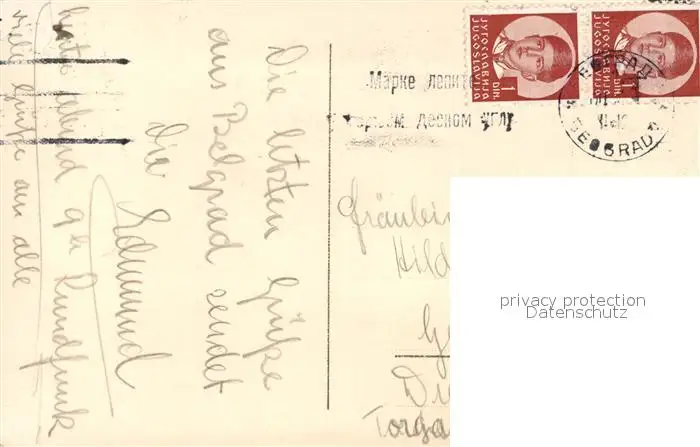 Die letzten Grüße
aus Belgrad sendet
Dir
Edmund
heute abend
Rundfunk
viele Grüße an alle
ЈУГОСЛАВИЈА
JUGOSLAVIJA
1
DIN.
ЈУГОСЛАВИЈА
JUGOSLAVIJA
DIN.
Марке лепите
десном углу
BEOGRAD
Fräulein
Hild
Torga
privacy protection
Datenschutz